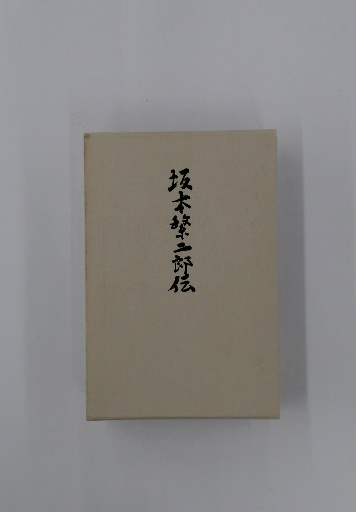 坂本繁二郎伝